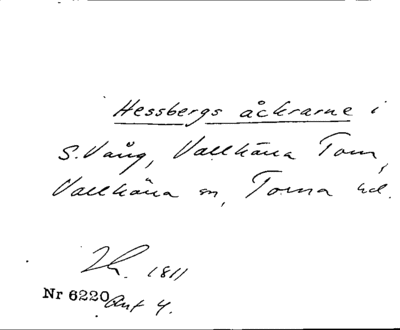 Hessbergs åckrarne i
S. Vång, Vallkärra Torn,
Vallkärra sn, Torna hd.
1811
Nr 6220 Akt 4.